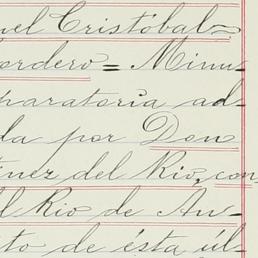 uel Cristóbal
Cordero = Minu-
paratoria ad-
da por Don
tínez del Rio, con
l Rio de An-
to de ésta úl-